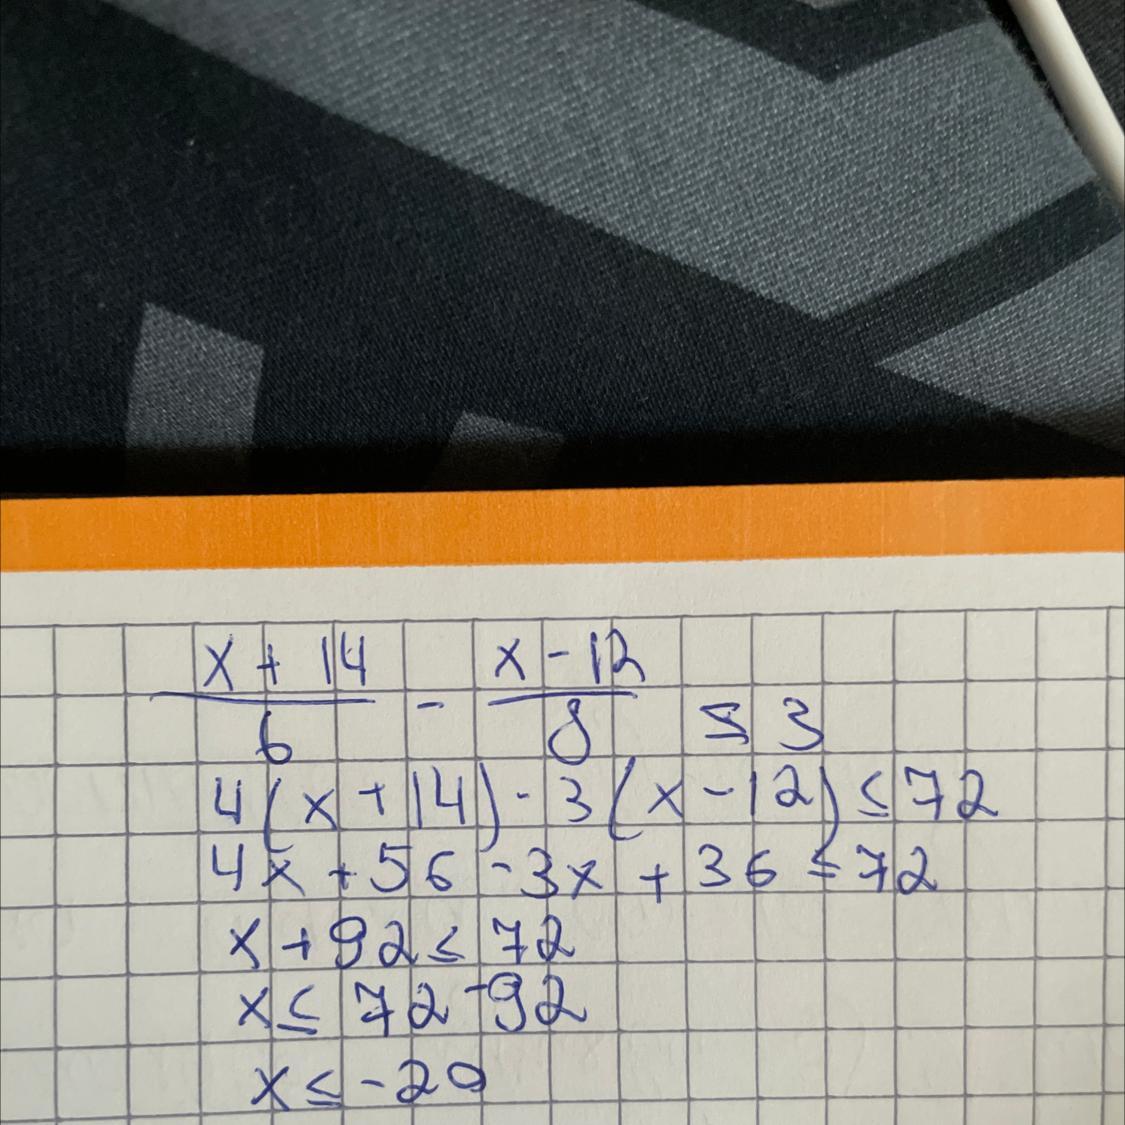 x + 14 / 6 - x - 12 / 8 ≤ 3
4(x + 14) - 3(x - 12) ≤ 72
4x + 56 - 3x + 36 ≤ 72
x + 92 ≤ 72
x ≤ 72 - 92
x ≤ -20